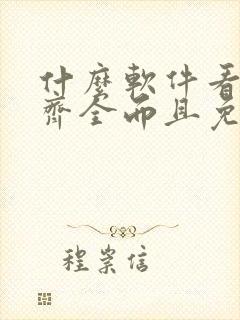 什麼軟件看
齊全而且免
程崇信